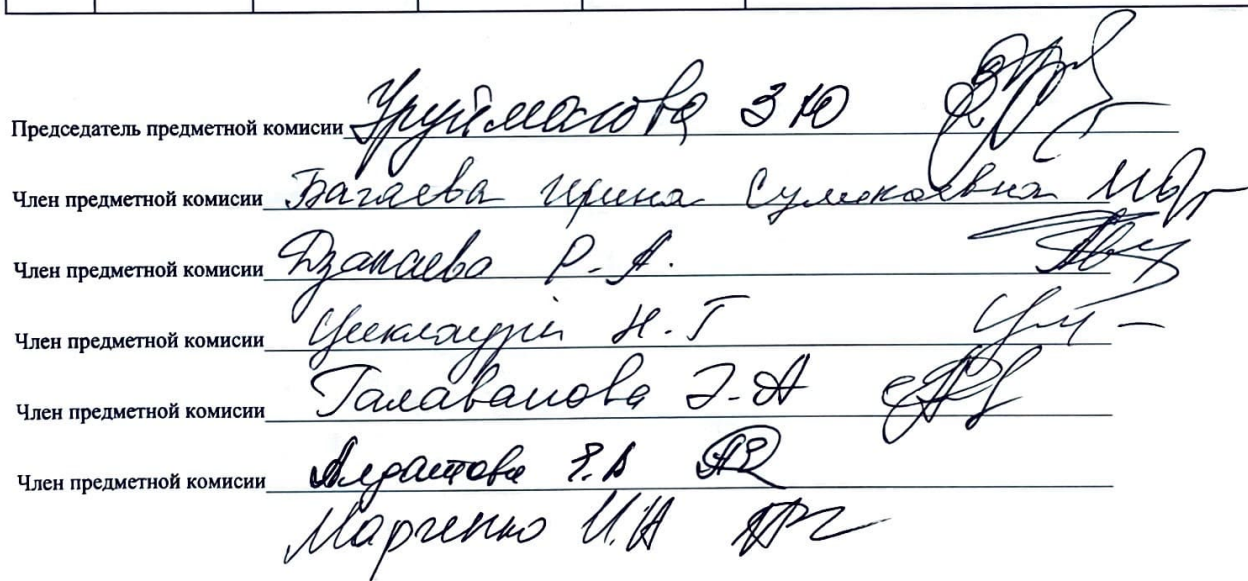 Председатель предметной комисии Уруймагова З Ю
Член предметной комисии Багаева Ирина Сулимовна
Член предметной комисии Дзапаева Р. А.
Член предметной комисии Циклаури Н. Г
Член предметной комисии Галаванова Э. А
Член предметной комисии Алдатова
Марченко И.Н